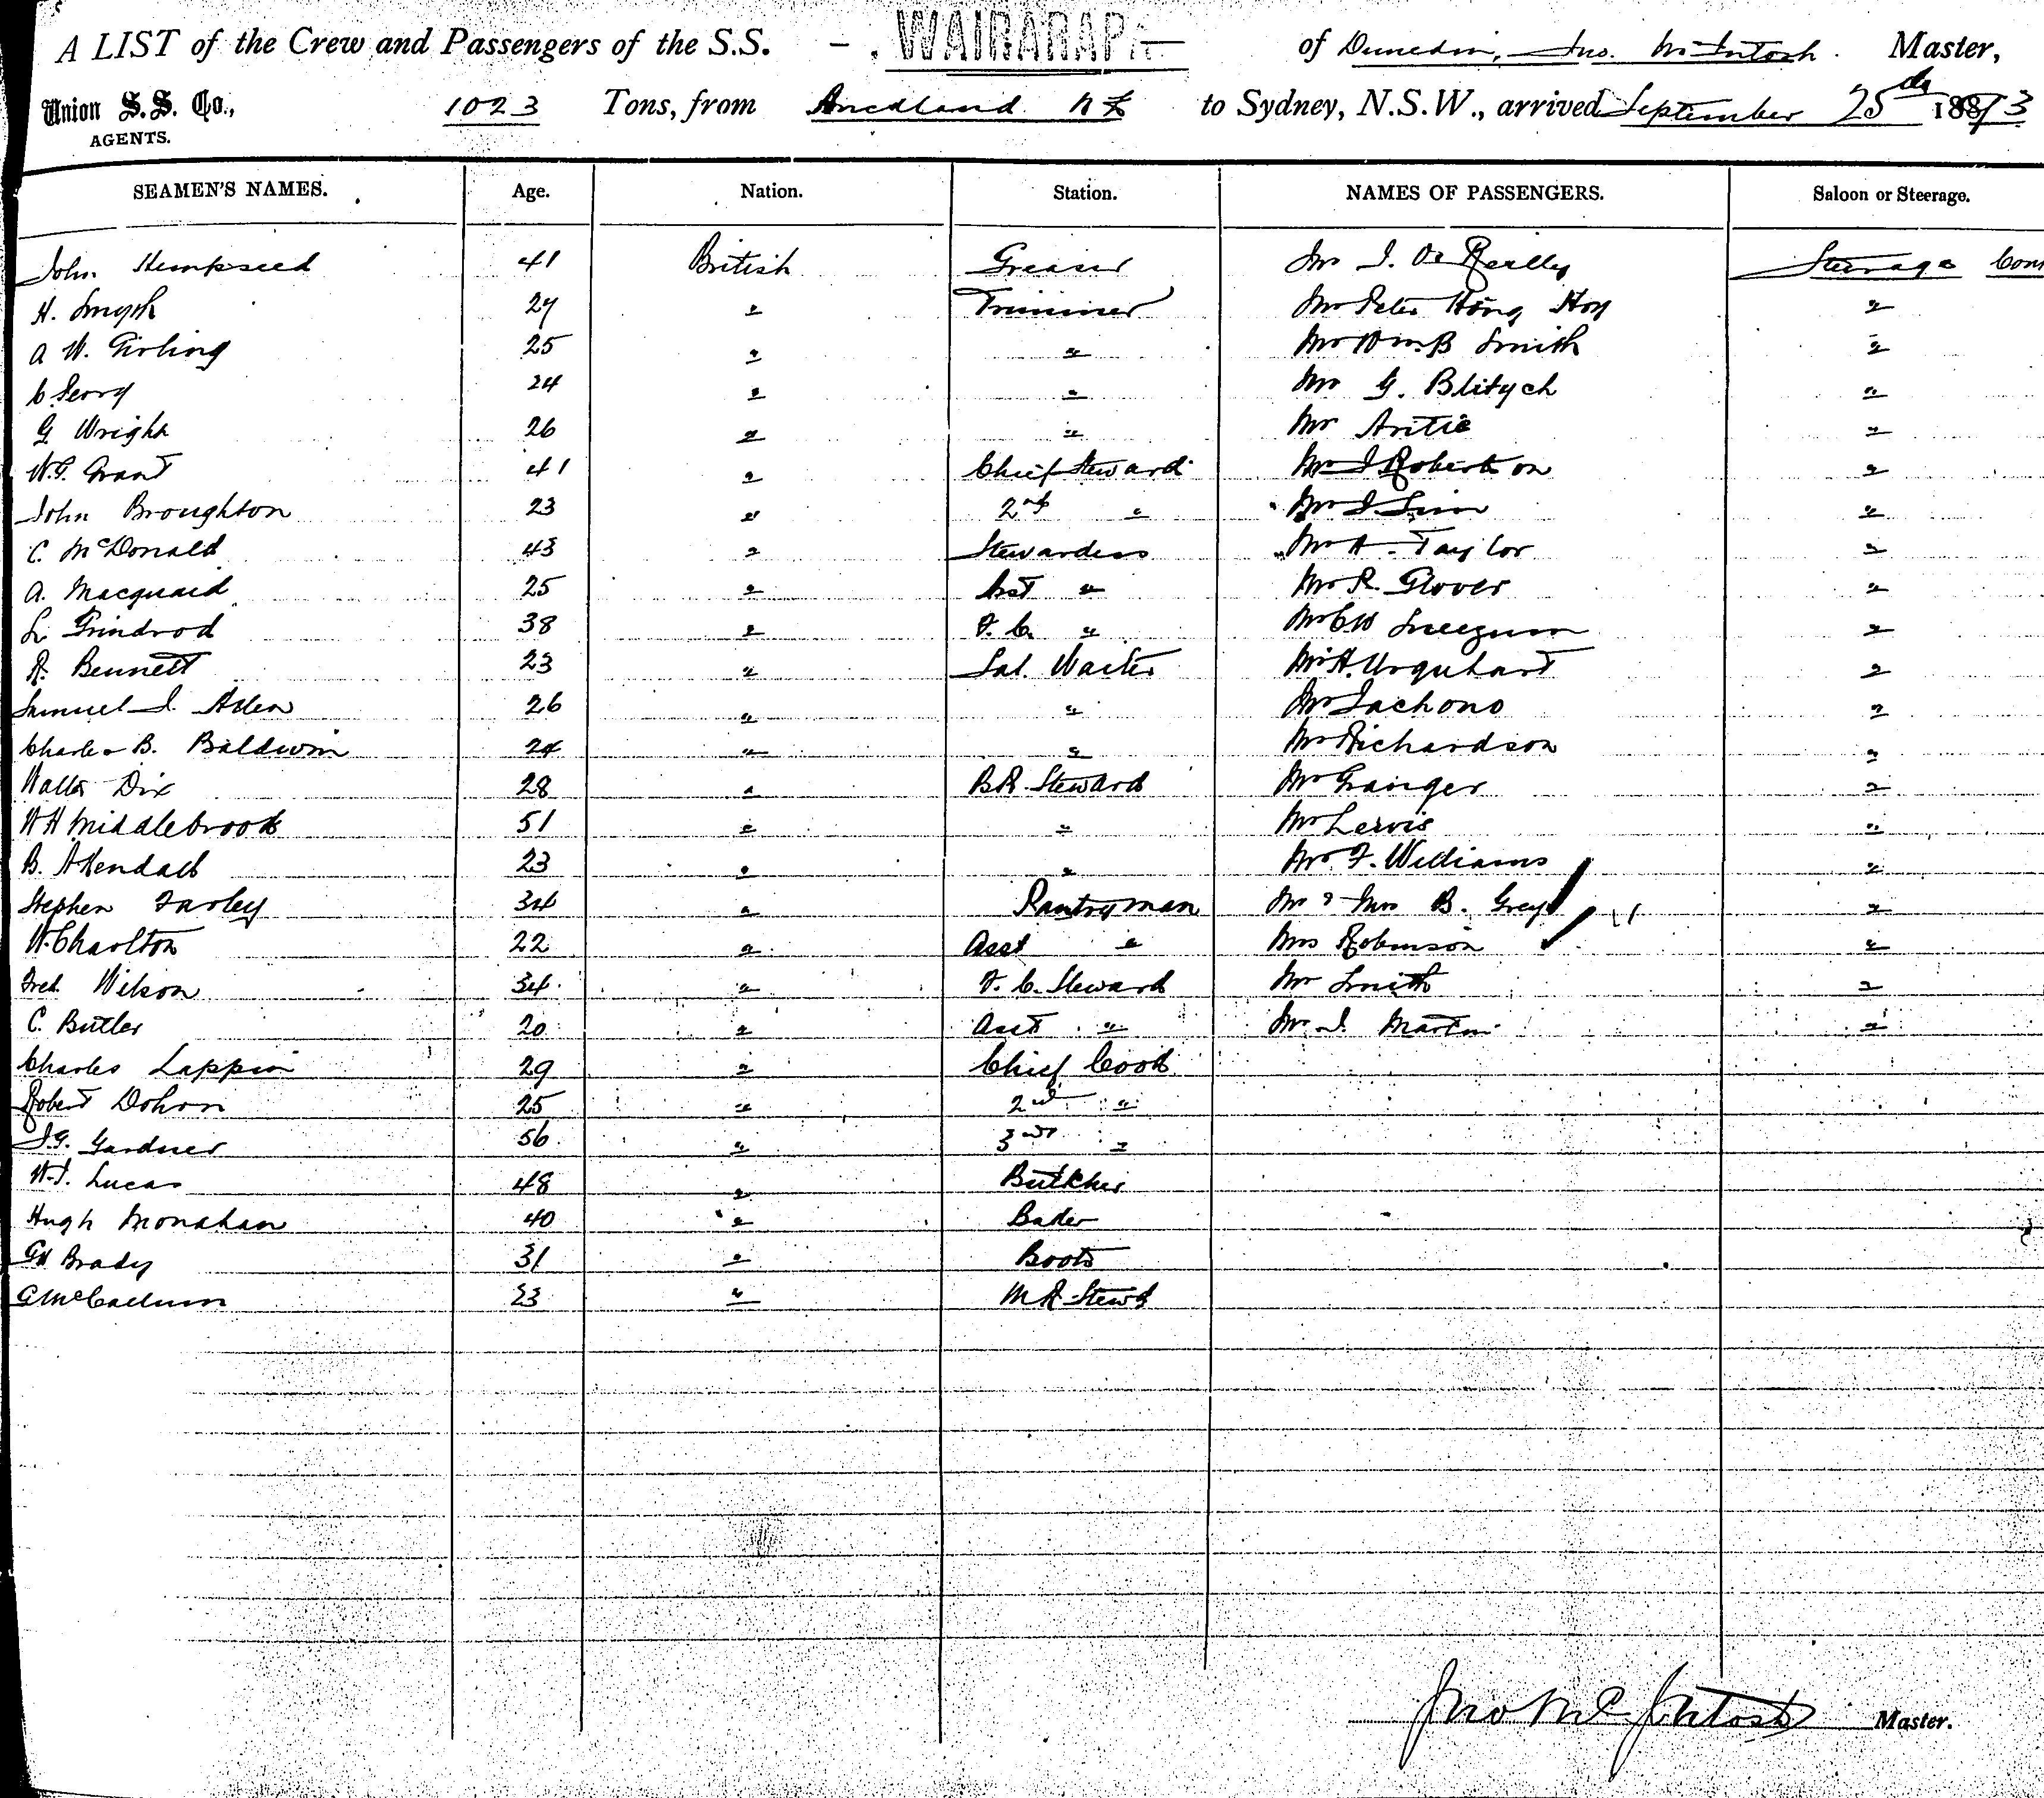 A LIST of the Crew and Passengers of the S.S. WAIRARAPA of Dunedin, Jno. McIntosh Master,
Union S.S. Co., 1023 Tons, from Auckland NZ to Sydney, N.S.W., arrived September 25th 188/3
AGENTS.
SEAMEN'S NAMES. Age. Nation. Station. NAMES OF PASSENGERS. Saloon or Steerage.
John Hempseed 41 British Greaser Mr J. O'Reilly Steerage
H. Smyth 27 " Trimmer Mr Peter Hong Hoy "
A W. Girling 25 " " Mr Wm. B Smith "
C 24 " " Mr G. Blitych "
G Wright 26 " " Mr "
W.G. Grant 41 " Chief Steward Mr J Robertson "
John Broughton 23 " 2nd " Mr J "
C. McDonald 43 " Stewardess Mr A. Taylor "
A. Macquaid 25 " Asst " Mr R. Glover "
L Grindrod 38 " F. C. " Mr C W "
R. Bennett 23 " Sal. Waiter Mr H. Urquhart "
Samuel J. Allen 26 " " Mr "
Charles B. Baldwin 24 " " Mr Richardson "
Walter Dix 28 " B.R. Steward Mr Grainger "
W H Middlebrook 51 " " Mr Lervis "
B. A Kendall 23 " " Mr F. Williams "
Stephen Farley 34 " Pantryman Mr & Mrs B. Grey "
W. Charlton 22 " Asst " Mrs Robinson "
Fred. Wilson 34 " F. C. Steward Mr Smith "
C. Butler 20 " Asst " Mr J. Martin "
Charles Lappin 29 " Chief Cook
Robert Dohon 25 " 2nd "
J.G. Gardner 56 " 3rd "
W.J. Lucas 48 " Butcher
Hugh Monahan 40 " Baker
GH Brady 31 " Boots
G McCallum 23 " M R Stewd
Jno McIntosh Master.